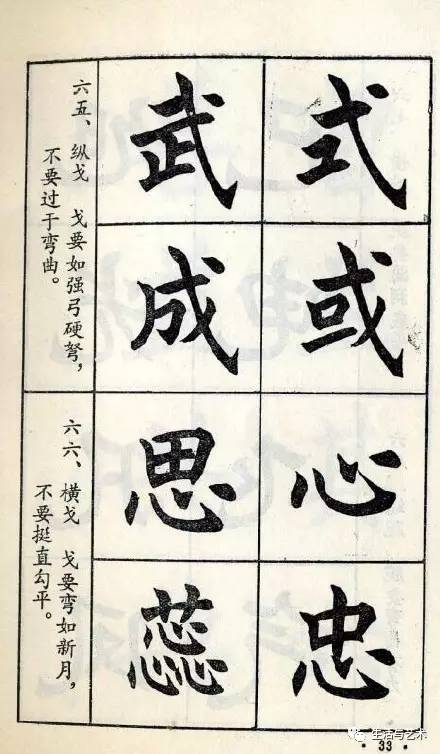 式
或
心
忠
武
成
思
蕊
六五、纵戈 戈要如强弓硬弩，
不要过于弯曲。
六六、横戈 戈要弯如新月，
不要挺直勾平。
·33·
生活与艺术